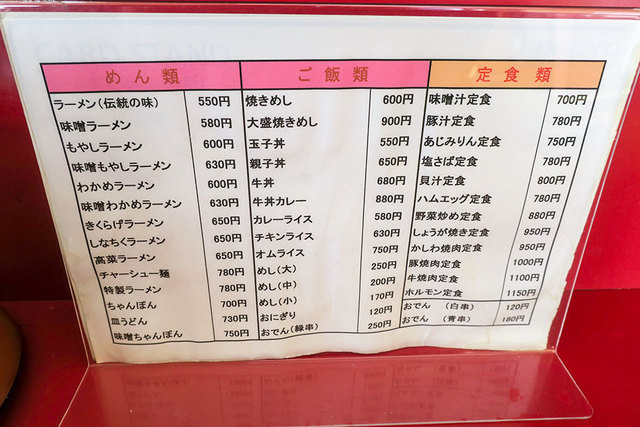 CARD STAND
めん類
ラーメン(伝統の味) 550円
味噌ラーメン 580円
もやしラーメン 600円
味噌もやしラーメン 630円
わかめラーメン 600円
味噌わかめラーメン 630円
きくらげラーメン 650円
しなちくラーメン 650円
高菜ラーメン 650円
チャーシュー麺 780円
特製ラーメン 780円
ちゃんぽん 700円
皿うどん 730円
味噌ちゃんぽん 750円
ご飯類
焼きめし 600円
大盛焼きめし 900円
玉子丼 550円
親子丼 650円
牛丼 680円
牛丼カレー 880円
カレーライス 580円
チキンライス 630円
オムライス 750円
めし(大) 250円
めし(中) 200円
めし(小) 170円
おにぎり 120円
おでん(緑串) 250円
定食類
味噌汁定食 700円
豚汁定食 780円
あじみりん定食 750円
塩さば定食 780円
貝汁定食 800円
ハムエッグ定食 780円
野菜炒め定食 880円
しょうが焼き定食 950円
かしわ焼肉定食 950円
豚焼肉定食 1000円
牛焼肉定食 1100円
ホルモン定食 1150円
おでん (白串) 120円
おでん (青串) 180円